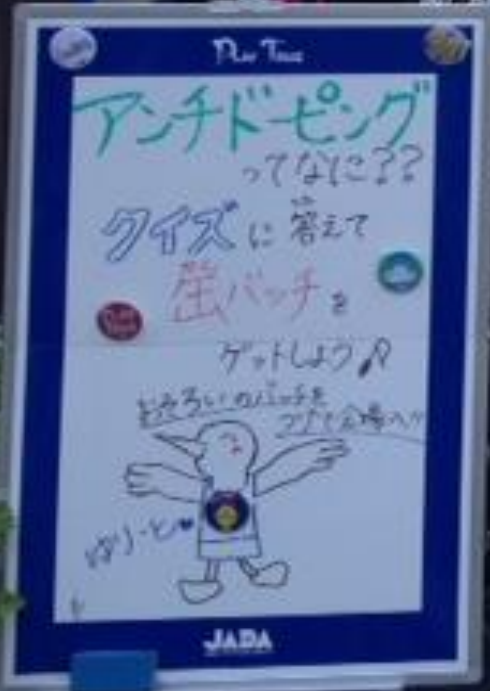 PLAY TRUE
アンチドーピング
ってなに??
クイズに答えて
缶バッチを
ゲットしよう♪
おそろいのバッチを
つけて会場へ!!
ぱりーと♥
JADA